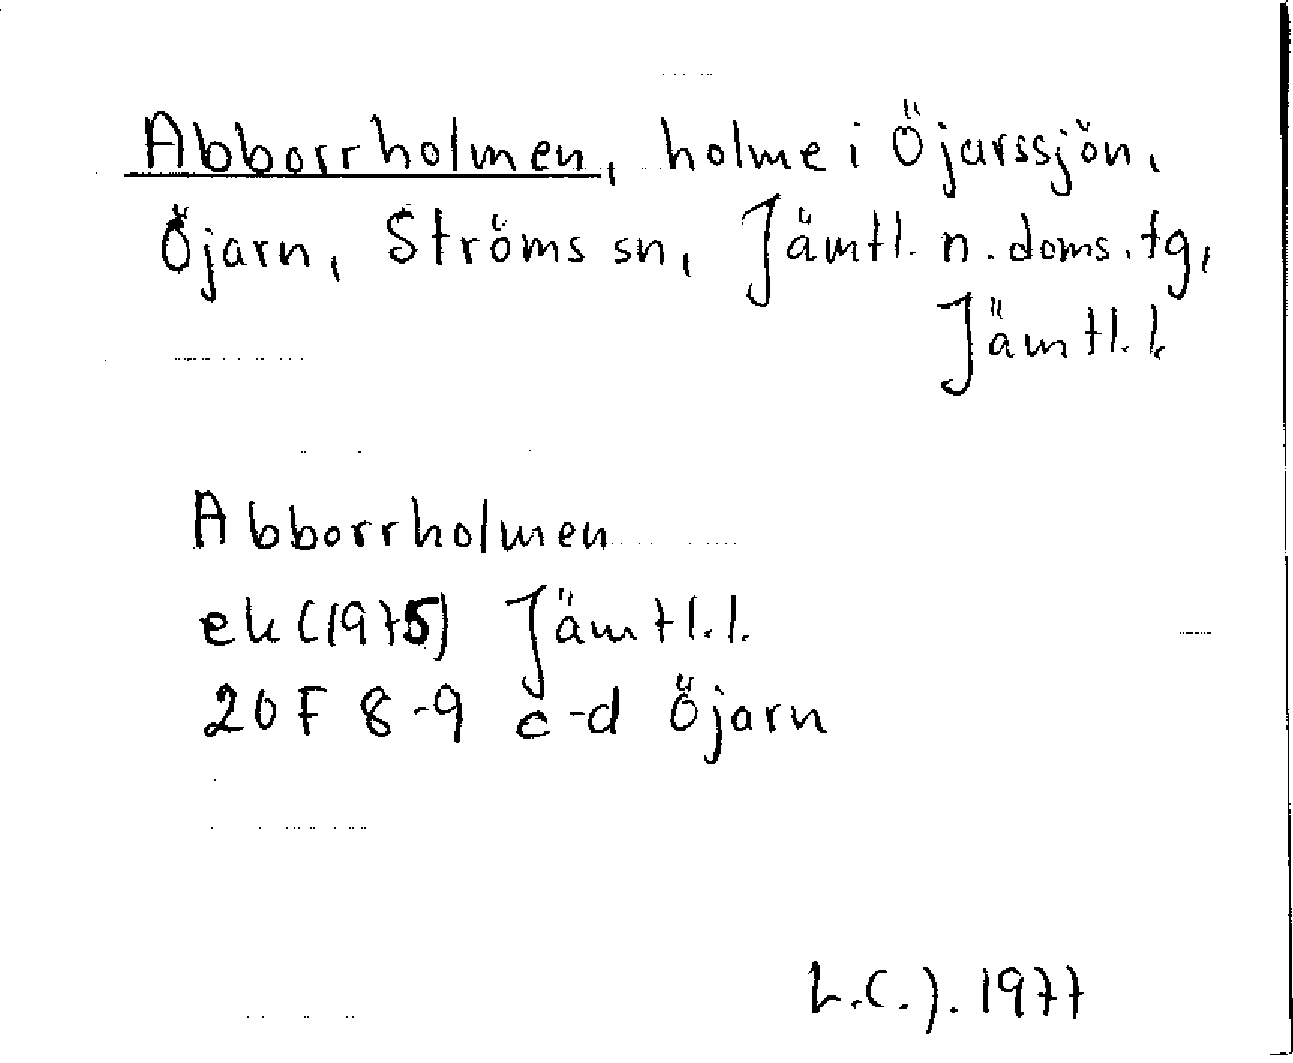 Abborrholmen, holme i Öjarssjön,
Öjarn, Ströms sn, Jämtl. n. doms. tg,
Jämtl. l.
Abborrholmen
ek (1975) Jämtl. l.
20F 8-9 c-d Öjarn
L.C.J. 1977